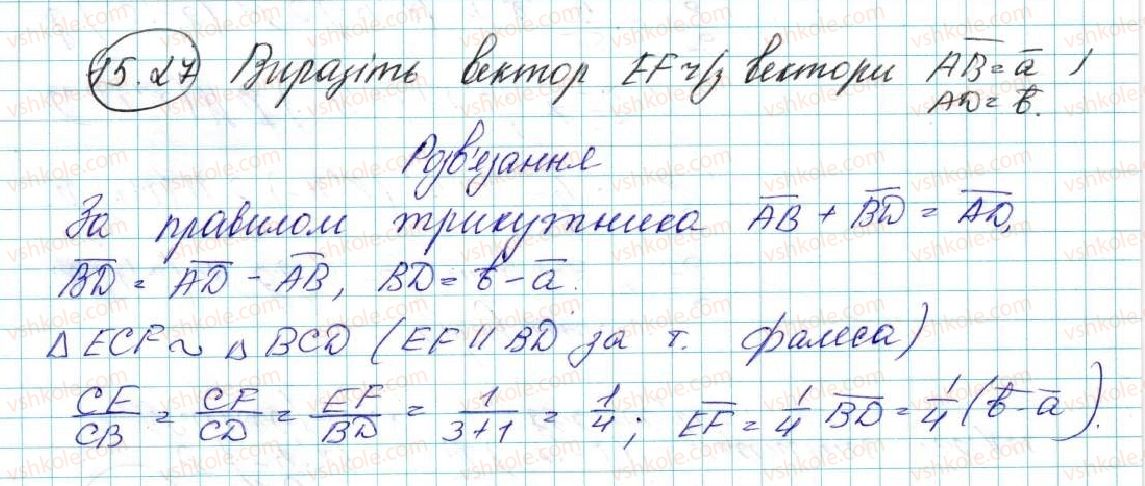 15.27 Виразіть вектор EF ч/з вектори \overline{AB} = \overline{a} і
AD = \overline{b}.
Розв'язання
За правилом трикутника \overline{AB} + \overline{BD} = \overline{AD},
\overline{BD} = \overline{AD} - \overline{AB}, BD = \overline{b} - \overline{a}.
△ECF ~ △BCD (EF || BD за т. Фалеса)
CE/CB = CF/CD = EF/BD = 1/(3+1) = 1/4; \overline{EF} = 1/4 \overline{BD} = 1/4 (\overline{b} - \overline{a}).
vshkole.com